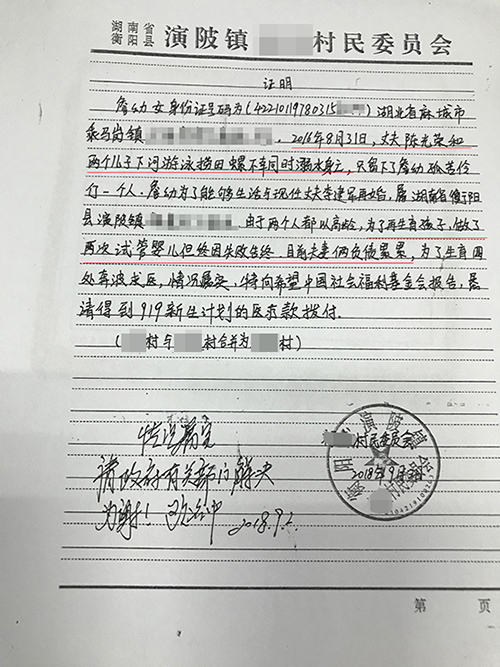 湖南省
衡阳县 演陂镇 村民委员会
证明
詹幼女身份证号码为(42210119780315 )湖北省麻城市
乘马岗镇 ,2016年8月31日,丈夫陈光荣和
两个儿子下河游泳捞田螺不幸同时溺水身亡,只留下了詹幼孤苦伶
仃一个人.詹幼为了能够生活与现任丈夫李建 再婚,居湖南省衡阳
县演陂镇 .由于两个人都以高龄,为了再生育孩子,做了
两次试管婴儿但终因失败告终.目前夫妻俩负债累累,为了生育四
处奔波求医,情况属实,特向希望中国社会福利基金会报告,恳
请得到919新生计划的医疗款拨付.
( 村与 村合并为 村)
情况属实
请政府有关部门解决
为谢! 2018.9.2
村民委员会
2018年9月2日
第 页